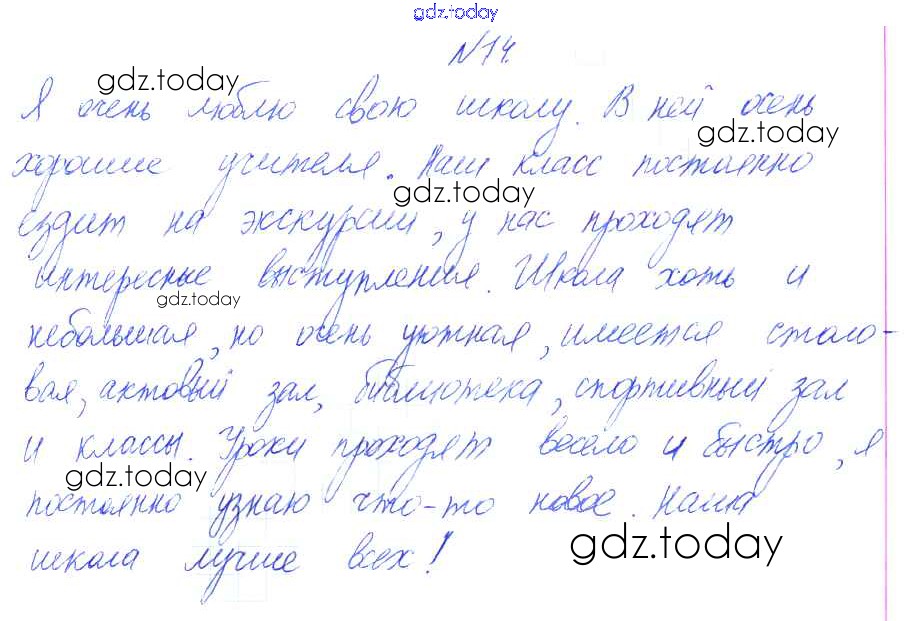 gdz.today
№14.
gdz.today
Я очень люблю свою школу. В ней очень
gdz.today
хорошие учителя. Наш класс постоянно
gdz.today
ездит на экскурсии, у нас проходят
интересные выступления. Школа хоть и
gdz.today
небольшая, но очень уютная, имеется столо-
вая, актовый зал, библиотека, спортивный зал
и классы. Уроки проходят весело и быстро, я
gdz.today
постоянно узнаю что-то новое. Наша
школа лучше всех!
gdz.today